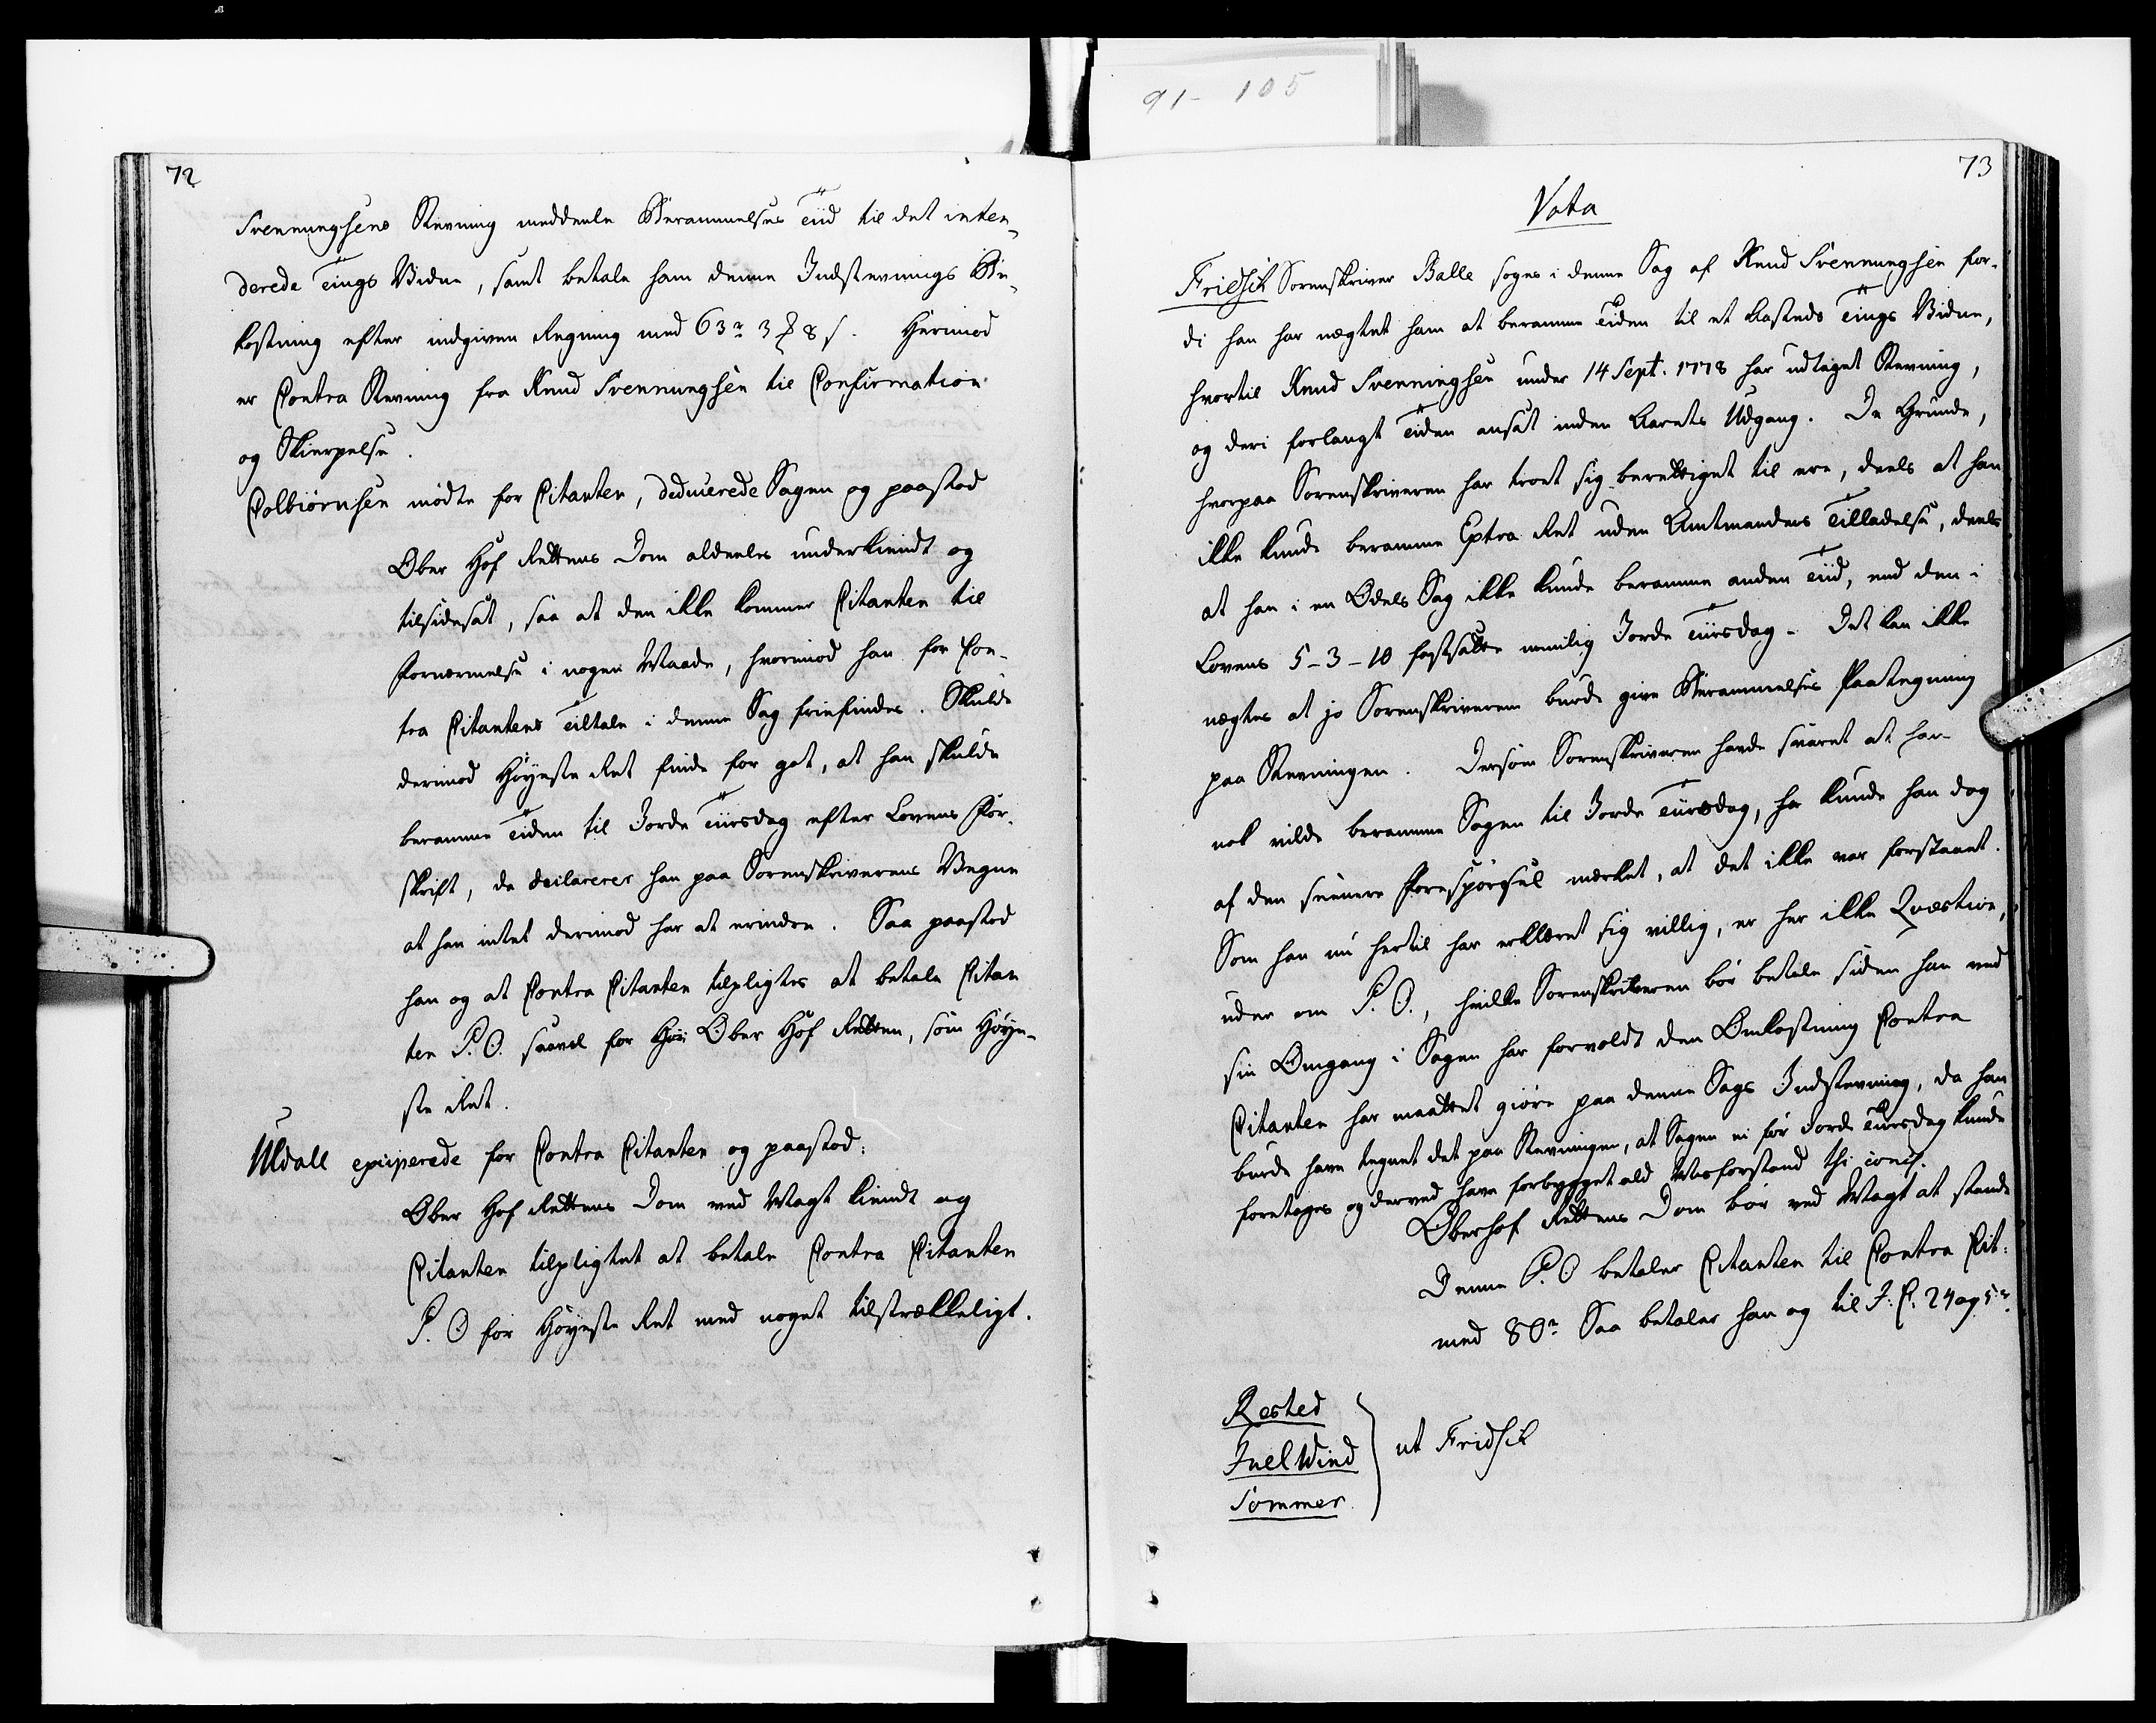 91-105
72
Svennungsens Stevning meddeele Berammelses Tiid til det inten-
derede Tings Vidne, samt betale ham denne Indstevnings Be-
kostning efter indgiven Regning med 63 rd 3 ₻ 8 s. Herimod
er Contra Stevning fra Knud Svennungsen til Confirmation
og Skierpelse.
Colbiörnsen mödte for Citanten, deducerede Sagen og paastod
Ober Hof Rettens Dom aldeeles underkiendt og
tilsidesat, saa at den ikke kommer Citanten til
Fornærmelse i nogen Maade, hvorimod han for Con-
tra Citantens Tiltale i denne Sag friefindes. Skulde
derimod Höyeste Ret finde for got, at han skulde
beramme Tiden til Jorde Tiirsdag efter Lovens For-
skrift, da declarerer han paa Sorenskriverens Vegne
at han intet derimod har at erindre. Saa paastod
han og at Contra Citanten tilpligtes at betale Citan
ten P. O. saavel for Ober Hof Retten, som Höye-
ste Ret.
Uldall exciperede for Contra Citanten og paastod:
Ober Hof Rettens Dom ved Magt kiendt og
Citanten tilpligtet at betale Contra Citanten
P. O for Höyeste Ret med noget tilstrækkeligt.
73
Vota
Fridsch Sorenskriver Balle søges i denne Sag af Knud Svennungsen for-
di han har nægtet ham at beramme Tiden til et Aasteds Tings Vidne,
hvortil Knud Svenningsen under 14 Sept. 1778 har udtaget Stevning,
og deri forlangt Tiden ansat inden Aarets Udgang. De Grunde,
hvorpaa Sorenskriveren har troet sig berettiget til ere, deels at han
ikke kunde beramme Extra Ret uden Amtmandens Tilladelse, deels
at han i en Odels Sag ikke kunde beramme anden Tiid, end den i
Lovens 5-3-10 fastsatte nemlig Jorde Tiirsdag. Det kan ikke
nægtes at jo Sorenskriveren burde give Berammelses Paategning
paa Stevningen. Dersom Sorenskriveren havde svaret at han
nok vilde beramme Sagen til Jorde Tiirsdag, saa kunde han dog
af den seenere Forespörgsel mærket, at det ikke var forstaaet.
Som han nu hertil har erklæret sig villig, er her ikke Qvæstion,
uden om P. O., hvilke Sorenskriveren bör betale siden han ved
sin Omgang i Sagen har forvoldt den Omkostning Contra
Citanten har maattet giöre paa denne Sags Indstevning, da han
burde have tegnet det paa Stevningen, at Sagen ei for Jorde Tiirsdag kunde
foretages og derved have forbygget ald Misforstand thi concl.
Oberhof Rettens Dom bör ved Magt at stande
Denne P. O betaler Citanten til Contra Cit:
med 80 rd Saa betaler han og til J. C. 24 og 5 rd.
Rosted
Juel Wind
Sommer
ut Fridsch